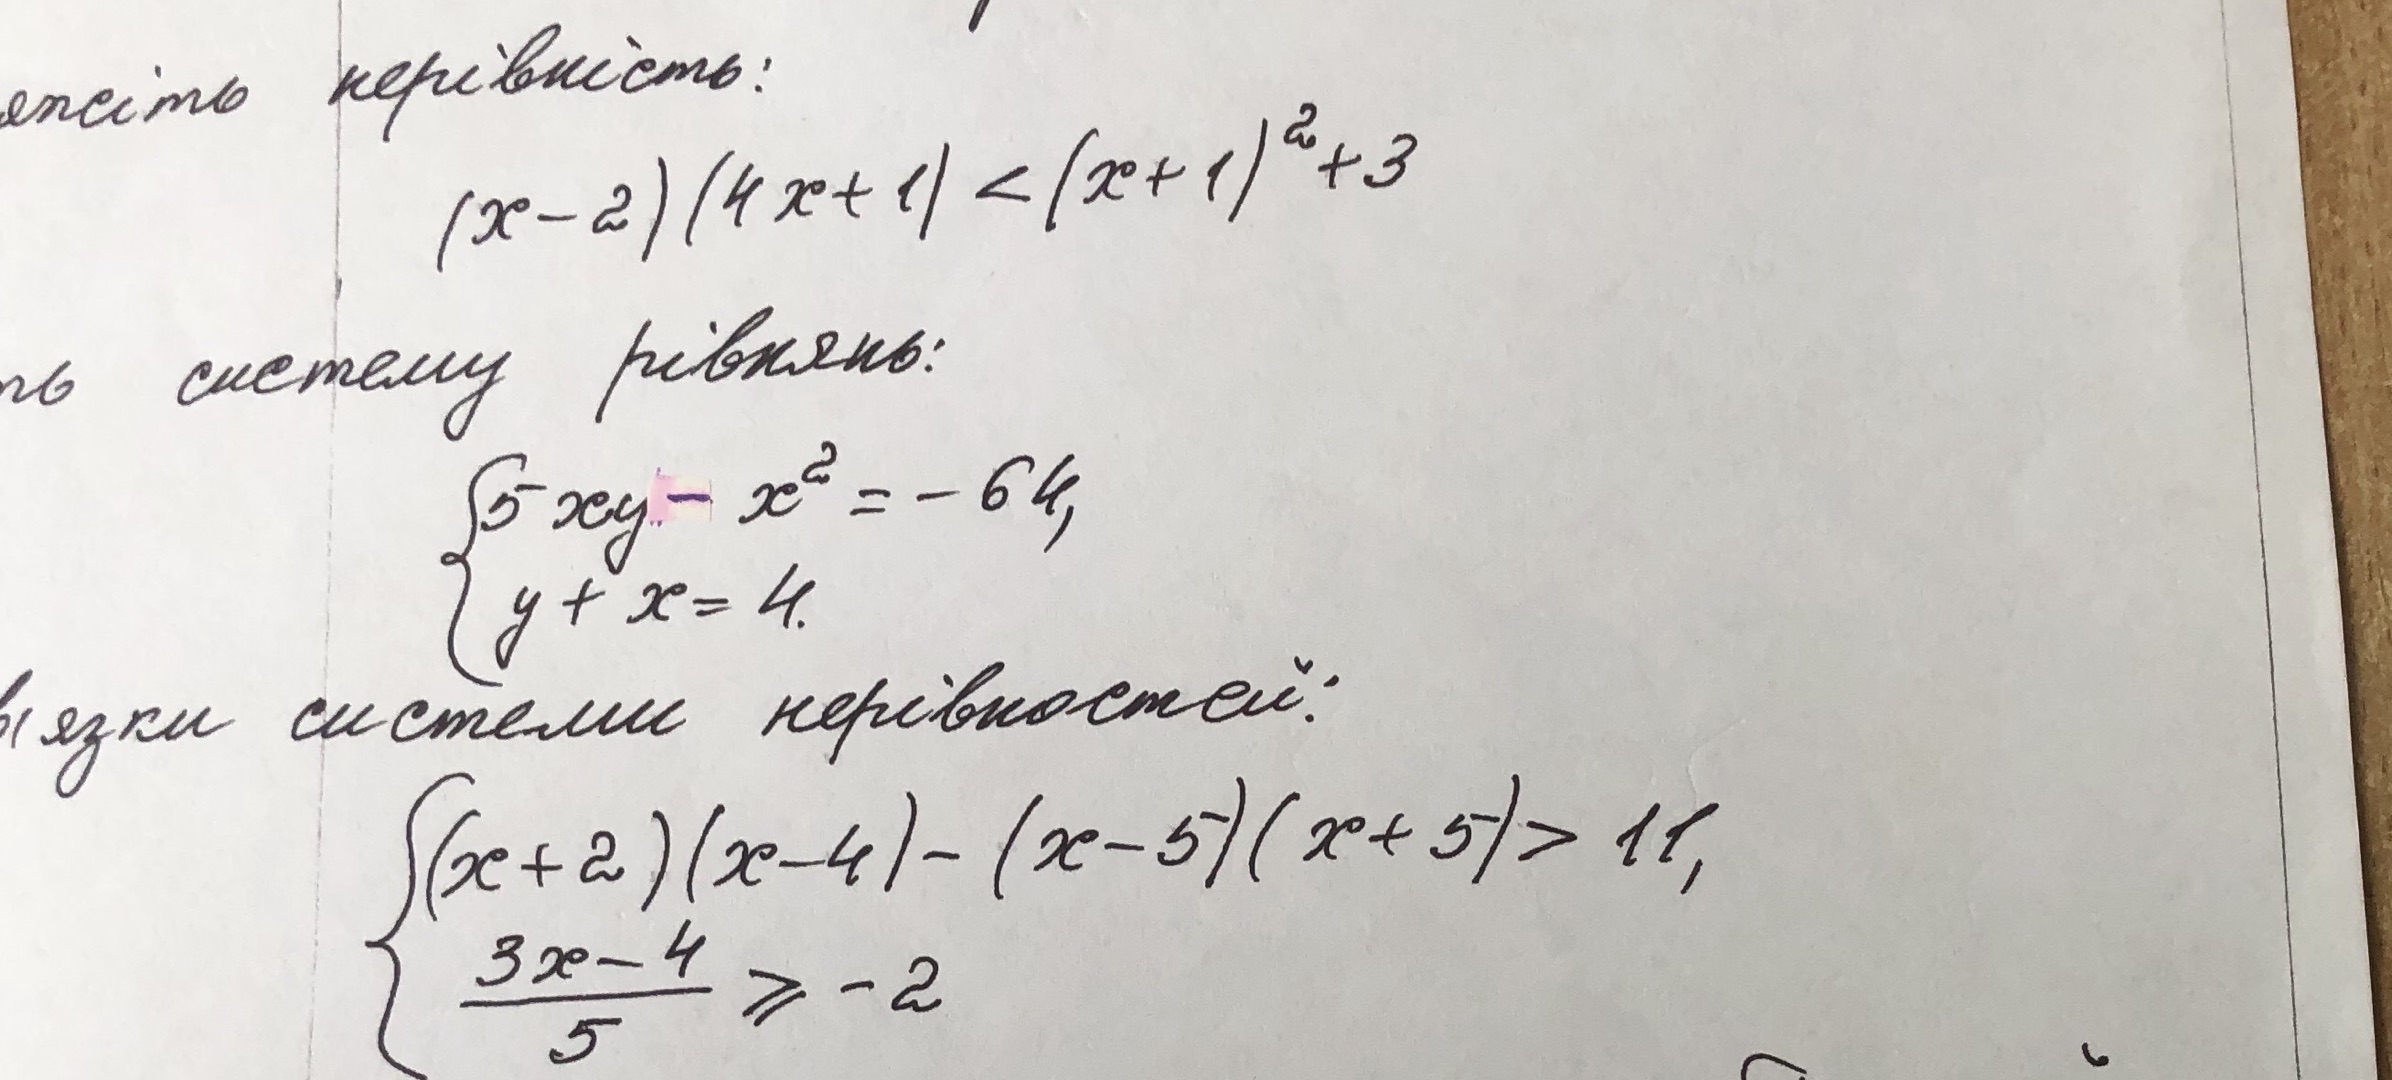 нерівність:
(x-2)(4x+1) < (x+1)²+3
систему рівнянь:
5xy - x² = -64,
y + x = 4.
системи нерівностей:
(x+2)(x-4) - (x-5)(x+5) > 11,
3x-4
5
≥ -2